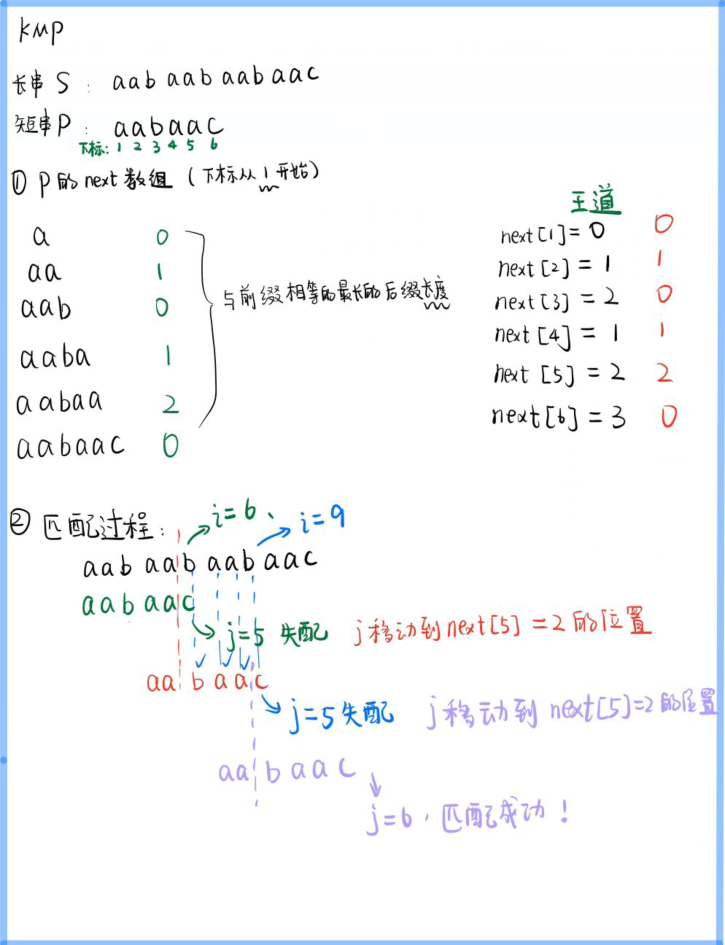 KMP
长串 S : aab aab aab aac
短串 P : aabaac
下标: 1 2 3 4 5 6
① P的next数组 (下标从1开始)
王道
a 0
aa 1
aab 0
aaba 1
aabaa 2
aabaac 0
与前缀相等的最长的后缀长度
next[1] = 0 0
next[2] = 1 1
next[3] = 2 0
next[4] = 1 1
next[5] = 2 2
next[6] = 3 0
② 匹配过程:
i=6、
i=9
aab aab aab aac
aab aac
j=5 失配 j移动到next[5] = 2的位置
aa b a a c
j=5失配 j移动到 next[5]=2的位置
aa b a a c
j=6, 匹配成功!